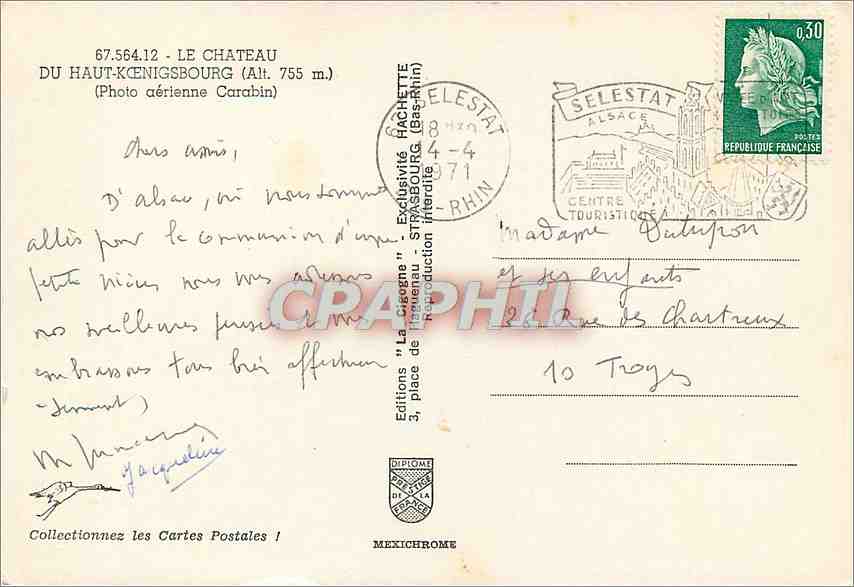 67.564.12 - LE CHATEAU
DU HAUT-KŒNIGSBOURG (Alt. 755 m.)
(Photo aérienne Carabin)
Chers amis,
D'Alsace, où nous sommes
allés pour la communion d'une
petite nièce nous vous adressons
nos meilleures pensées et vous
embrassons tous bien affectueu
-sement
Jacqueline
Collectionnez les Cartes Postales !
Editions "La Cigogne" - Exclusivité HACHETTE
3, place de Haguenau - STRASBOURG (Bas-Rhin)
Reproduction interdite
DIPLOME
PRESTIGE
DE LA
FRANCE
MEXICHROME
67 SELESTAT
18 H30
4-4
1971
-RHIN
SELESTAT
ALSACE
CENTRE
TOURISTIQUE
0,30
POSTES
REPUBLIQUE FRANÇAISE
Madame
et ses enfants
28 Rue des Chartreux
10 Troyes
CPAPHIL